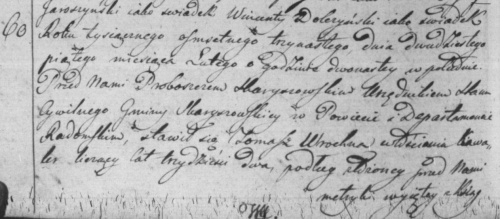 Jaroszyński iako swiadek Wincenty Dobrzyński iako swiadek
60
Roku tysiącznego osmsetnego trzynastego dnia dwudziestego
piątego miesiąca Lutego o godzinie dwunastey w południe.
Przed Nami Proboszczem Skaryszowskim Urzędnikiem Stanu
Cywilnego Gminy Skaryszowskiey w Powiecie i Departamencie
Radomskim, stawił się Tomasz Wrochna włościanin kawa-
ler liczący lat trzydzieści dwa, podług złożoney przed Nami
metryki wyiętey z Xiąg